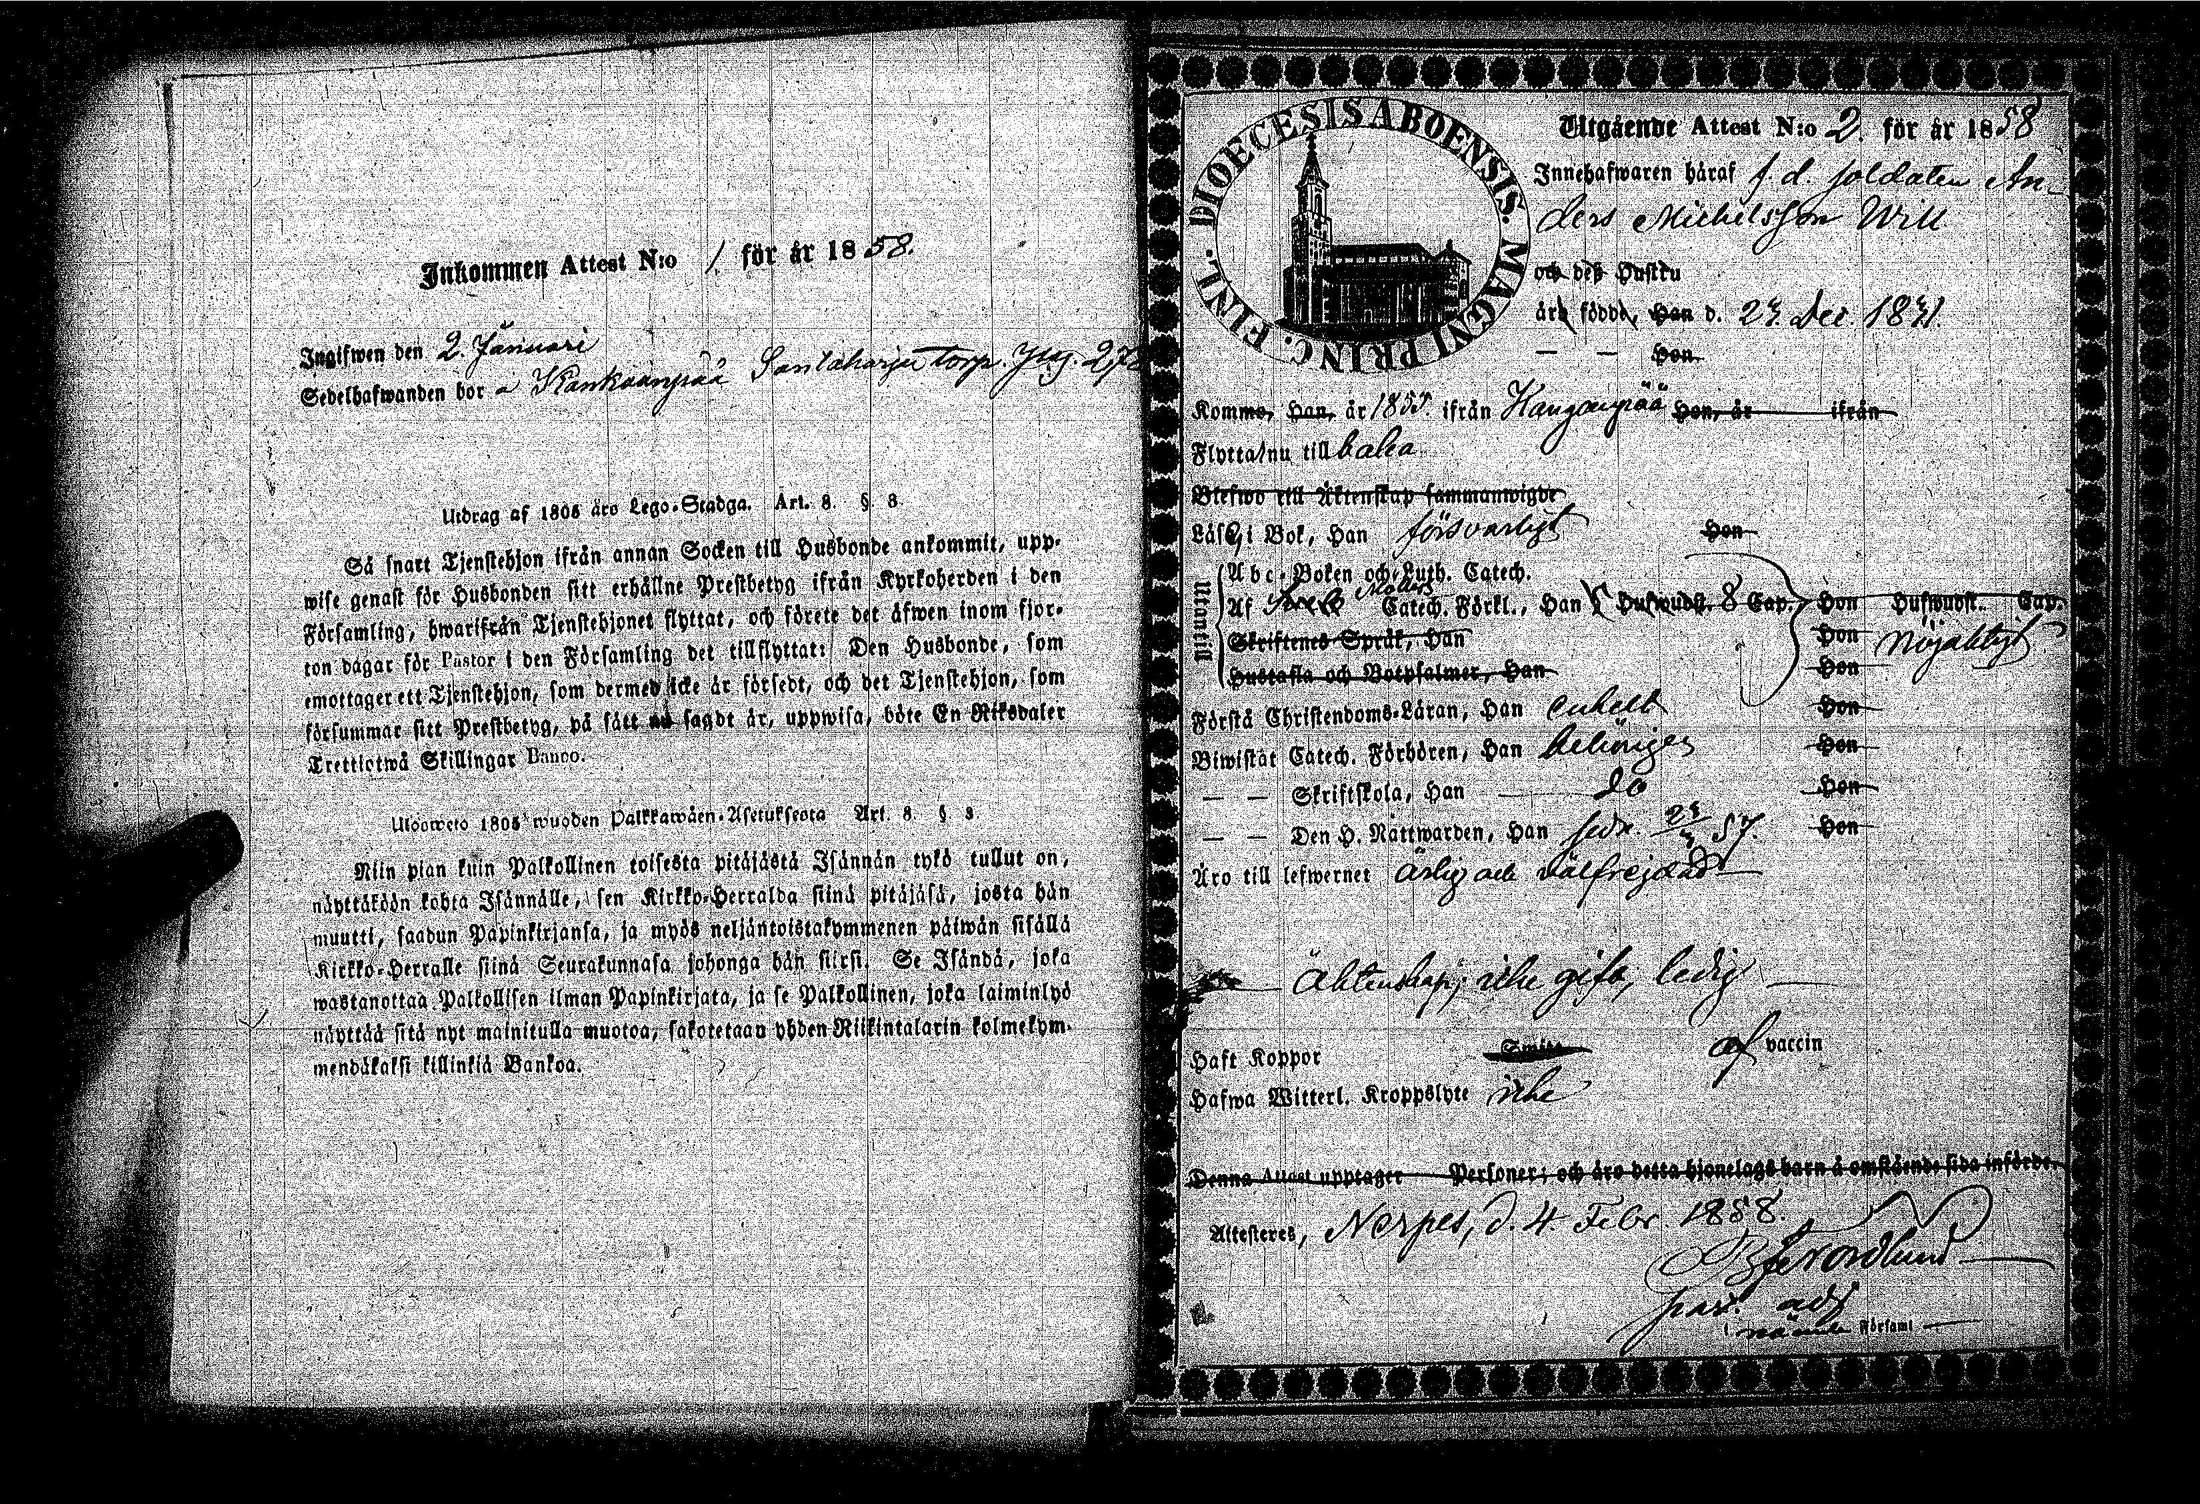 Inkommen Attest N:o 1. för år 1858.
Ingifwen den 2. Januari
Sedelhafwanden bor å Kankaanpää Santaharju torp.
Utdrag af 1805 års Lego-Stadga. Art. 8. § 3.
Så snart Tjenstehjon ifrån annan Socken till Husbonde ankommit, upp-
wise genast för Husbonden sitt erhållne Prestbetyg ifrån Kyrkoherden i den
Församling, hwarifrån Tjenstehjonet flyttat, och förete det äfwen inom fjor-
ton dagar för Pastor i den Församling det tillflyttat: Den Husbonde, som
emottager ett Tjenstehjon, som dermed icke är försedt, och det Tjenstehjon, som
försummar sitt Prestbetyg, på sätt nu sagdt är, uppwisa, böte En Riksdaler
Trettiotwå Skillingar Banco.
Ulosweto 1805 wuoden Palkkawäen-Asetuksesta Art. 8. § 3.
Niin pian kuin Palkollinen toisesta pitäjästä Isännän tykö tullut on,
näyttäköön kohta Isännälle, sen Kirkko-Herralda siinä pitäjäsä, josta hän
muutti, saadun Papinkirjansa, ja myös neljäntoistakymmenen päiwän sisällä
Kirkko-Herralle siinä Seurakunnasa johonga hän siirsi. Se Isändä, joka
wastanottaa Palkollisen ilman Papinkirjata, ja se Palkollinen, joka laiminlyö
näyttää sitä nyt mainitulla muotoa, sakotetaan yhden Riikintalarin kolmekym-
mendäkaksi killinkiä Bankoa.
DIOECESIS ABOENSIS. MAGNI PRINC. FINL.
Utgående Attest N:o 2. för år 1858
Innehafwaren häraf f. d. soldaten An-
ders Michelsson Will
och deß Hustru
äro födde, Han d. 23. Dec. 1831.
— — Hon
Kommo, Han, år 1855. ifrån Kangaupää Hon, år ifrån
Flytta nu till baka
Blefwo till Äktenskap sammanwigde
Läse i Bok, Han försvarligt Hon
Utantill
Abc-Boken och Luth. Catech.
Af Möllers Catech. Förkl., Han Hufwudst. 8 Cap. Hon Hufwudst. Cap.
Skriftenes Språk, Han Hon Nöjaktigt
Hustafla och Botpsalmer, Han Hon
Förstå Christendoms-Läran, Han enkelt Hon
Biwistat Catech. Förhören, Han behörigen Hon
— — Skriftskola, Han do Hon
— — Den H. Nattwarden, Han sedn. 57. Hon
Äro till lefwernet ärlig och välfrejdad
Äktenskap; icke gift, ledig
Haft Koppor Smitt af vaccin
Hafwa Witterl. Kroppslyte icke
Denna Attest upptager Personer; och äro detta hjonelags barn å omstående sida införde.
Attesteres, Nerpes, d. 4 Febr. 1858.
past. adj
i nämnde Församl